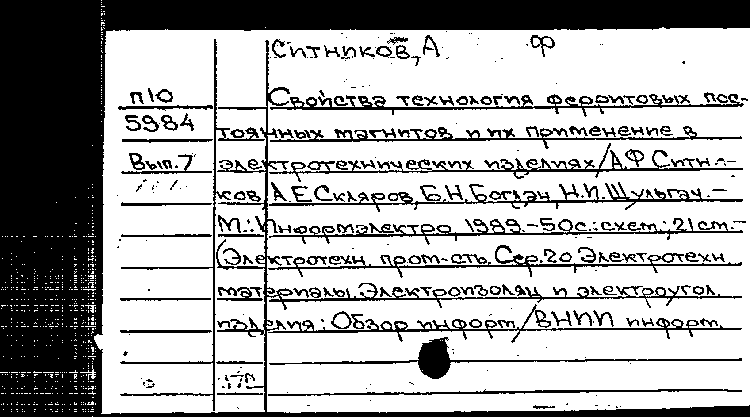 Ситников, А Ф
П10 Свойства, технология ферритовых пос-
5984 тоянных магнитов и их применение в
Вып.7 электротехнических изделиях/А.Ф Ситни-
ков, А.Е Скляров, Б.Н. Богдан, Н.И. Шульгач. —
М.: Информэлектро, 1989.-50с.:схем.; 21см.-
(Электротехн. пром-сть. Сер.20, Электротехн.
материалы. Электроизоляц. и электроугол.
изделия: Обзор информ./ВНИИ информ.